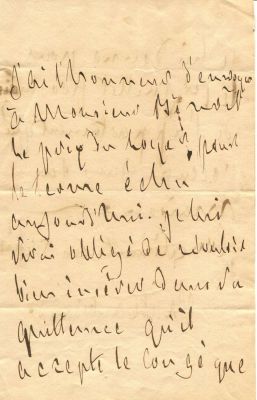 J'ai l'honneur d'envoyer
à Monsieur Benoit
le prix du loyer, pour
le terme échu
aujourd'hui. Je lui
serai obligé de vouloir
bien insérer dans sa
quittance qu'il
accepte le congé que